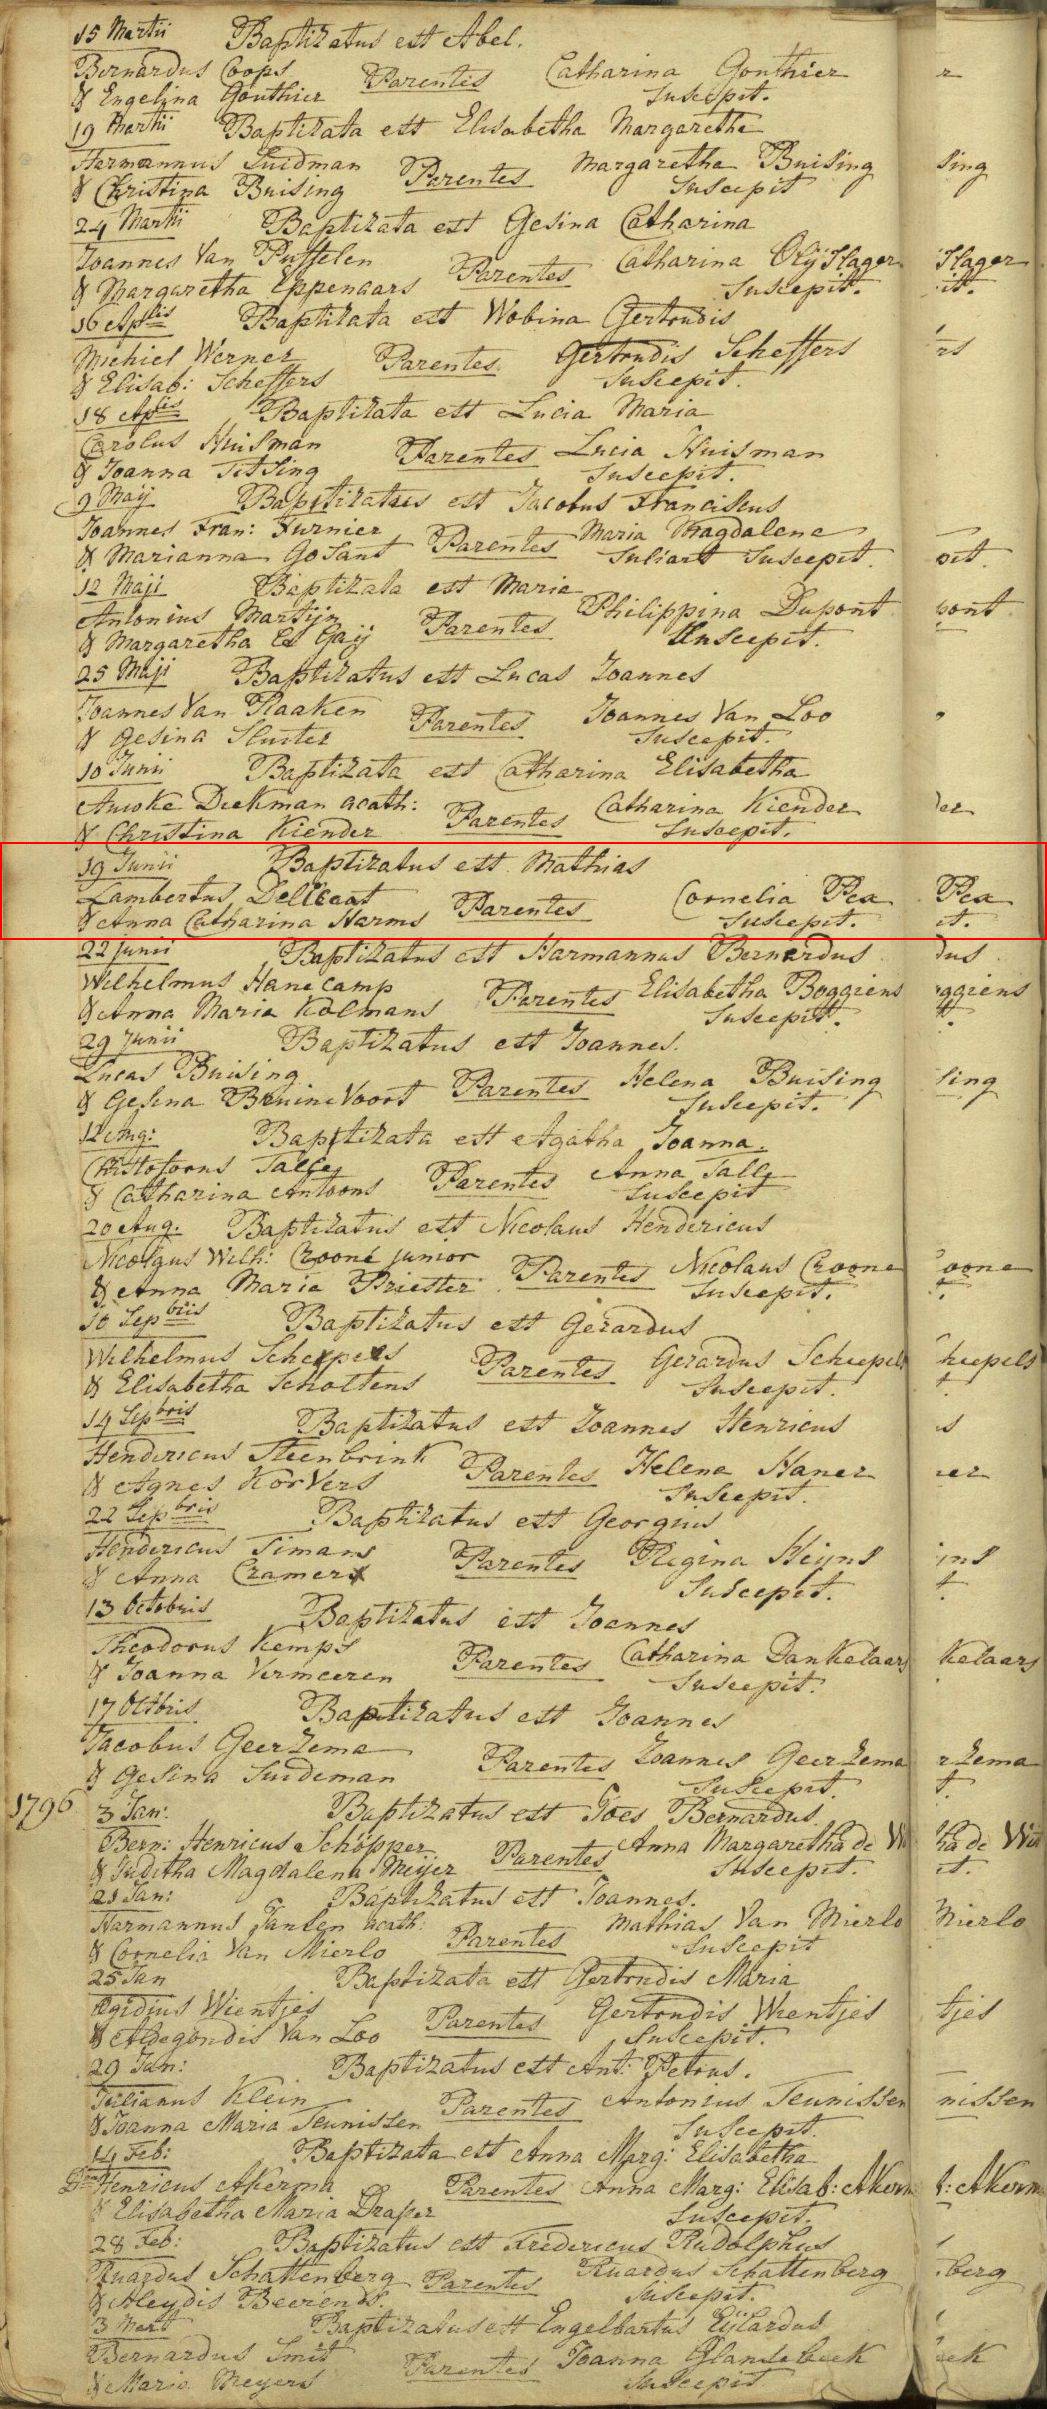 15 Martii Baptizatus est Abel.
Bernardus Coops Parentes Catharina Gonthier
& Engelina Gonthier Suscepit.
19 Martii Baptizata est Elisabetha Margaretha
Hermannus Suidman Parentes Margaretha Buising
& Christina Buising Suscepit
24 Martii Baptizata est Gesina Catharina
Joannes Van Pusselen Parentes Catharina Olijslager
& Margaretha Eppenaars Suscepit.
16 Aplis Baptizata est Wobina Gertrudis
Michiel Werner Parentes Gertrudis Scheffers
& Elisab: Scheffers Suscepit.
18 Aplis Baptizata est Lucia Maria
Carolus Huisman Parentes Lucia Huisman
& Joanna Titsing Suscepit.
9 Maij Baptizatus est Jacobus Franciscus
Joannes Fran: Furnier Parentes Maria Magdalena
& Marianna Gosant Suliart Suscepit.
12 Maji Baptizata est Maria
Antonius Martijn Parentes Philippina Dupont
& Margaretha Le Gaij Suscepit.
25 Maji Baptizatus est Lucas Joannes
Joannes Van Raaken Parentes Joannes Van Loo
& Gesina Sluiter Suscepit.
10 Junii Baptizata est Catharina Elisabetha
Anioke Diekman acath: Parentes Catharina Kiender
& Christina Kiender Suscepit.
19 Junii Baptizatus est Mathias
Lambertus Delicaat Parentes Cornelia Pea
& Anna Catharina Harms Suscepit.
22 Junii Baptizatus est Harmannus Bernardus
Wilhelmus Hanecamp Parentes Elisabetha Boggiens
& Anna Maria Kolmans Suscepit.
29 Junii Baptizatus est Joannes.
Lucas Buising Parentes Helena Buising
& Gesina Bruine Voort Suscepit.
12 Aug: Baptizata est Agatha Joanna.
Christoforus Talle Parentes Anna Talle
& Catharina Antoons Suscepit
20 Aug. Baptizatus est Nicolaus Hendericus
Nicolaus Wilh: Croone junior Parentes Nicolaus Croone
& Anna Maria Priester Suscepit.
10 Sepbris Baptizatus est Gerardus
Wilhelmus Schepers Parentes Gerardus Scheepels
& Elisabetha Scholtens Suscepit.
14 Sepbris Baptizatus est Joannes Henricus
Hendericus Steenbrink Parentes Helena Haner
& Agnes Korvers Suscepit.
22 Sepbris Baptizatus est Georgius
Hendericus Timans Parentes Regina Heijns
& Anna Cramer Suscepit.
13 Octobris Baptizatus est Joannes
Theodorus Kemps Parentes Catharina Dankelaars
& Joanna Vermeeren Suscepit.
17 Octbris Baptizatus est Joannes
Jacobus Geerzema Parentes Joannes Geerzema
& Gesina Suideman Suscepit.
1796 3 Jan: Baptizatus est Joes Bernardus.
Bern: Henricus Schöpper Parentes Anna Margaretha de Wit
& Juditha Magdalena Meijer Suscepit.
21 Jan: Baptizatus est Joannes.
Harmannus Jansen acath: Parentes Mathias Van Mierlo
& Cornelia Van Mierlo Suscepit
25 Jan Baptizata est Gertrudis Maria
Egidius Wientjes Parentes Gertrudis Wientjes
& Aldegondis Van Loo Suscepit.
29 Jan: Baptizatus est Ant: Petrus.
Julianus Klein Parentes Antonius Teunissen
& Joanna Maria Teunissen Suscepit.
14 Feb: Baptizata est Anna Marg: Elisabetha
Henricus Akerma Parentes Anna Marg: Elisab: Akerm
& Elisabetha Maria Draper Suscepit.
28 Feb: Baptizatus est Fredericus Rudolphus
Ruardus Schattenberg Parentes Ruardus Schattenberg
& Aleydis Beerends. Suscepit.
3 Mart Baptizatus est Engelbartus Eijlardus
Bernardus Smit Parentes Joanna Glansebeek
& Maria Meyers Suscepit